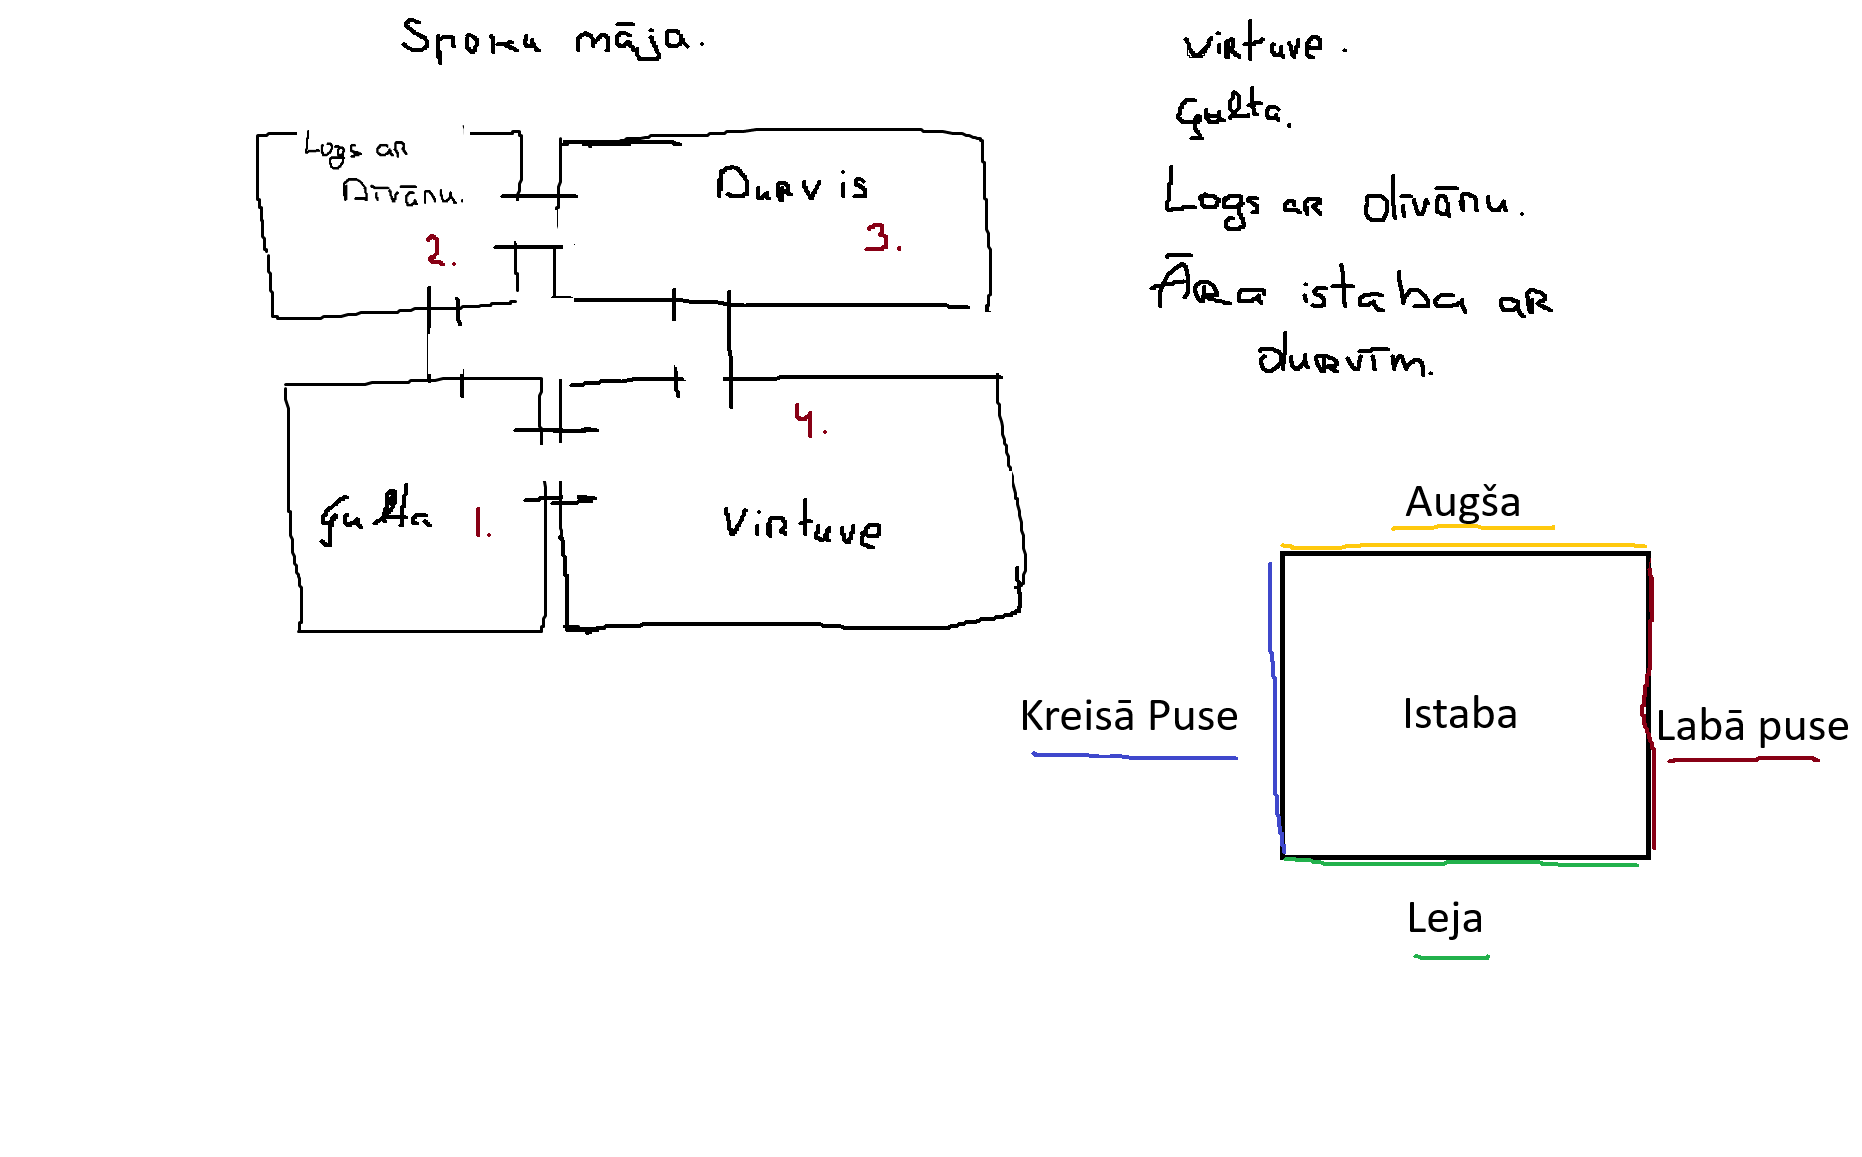 Spoku māja.
Logs ar
Dīvānu.
2.
Durvis
3.
Gulta 1.
4.
Virtuve
Virtuve.
Gulta.
Logs ar dīvānu.
Āra istaba ar
durvīm.
Augša
Kreisā Puse
Istaba
Labā puse
Leja